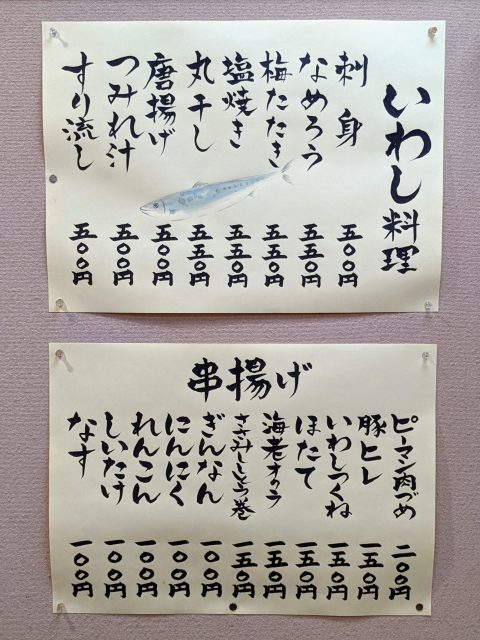 いわし料理
刺身 五〇〇円
なめろう 五五〇円
梅たたき 五五〇円
塩焼き 五五〇円
丸干し 五五〇円
唐揚げ 五〇〇円
つみれ汁 五〇〇円
すり流し 五〇〇円
串揚げ
ピーマン肉づめ 二〇〇円
豚ヒレ 一五〇円
いわしつくね 一五〇円
ほたて 一五〇円
海老オクラ 一五〇円
ささみしそ巻 一五〇円
ぎんなん 一〇〇円
にんにく 一〇〇円
れんこん 一〇〇円
しいたけ 一〇〇円
なす 一〇〇円